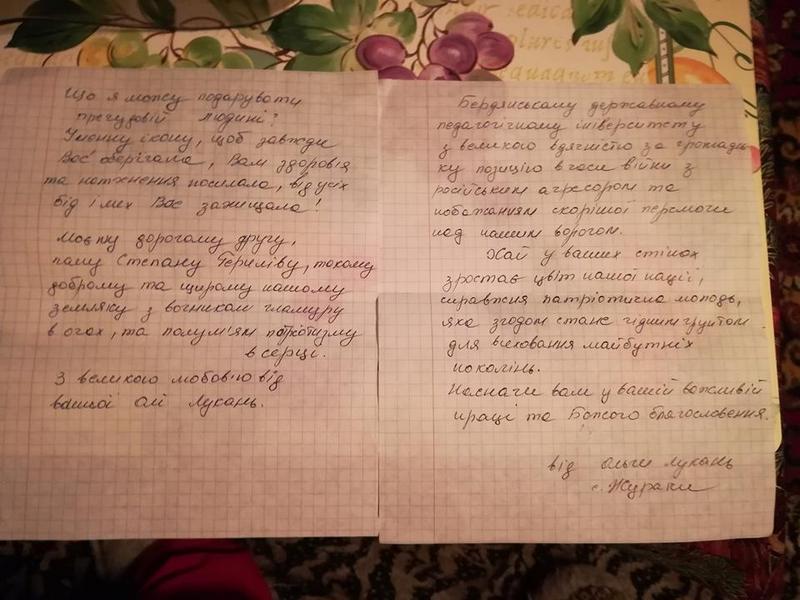 Що я можу подарувати
пречудовій людині?
Іменну ікону, щоб завжди
Вас оберігала, Вам здоров'я
та натхнення посилала, від усіх
бід і лих Вас захищала!
Моєму дорогому другу,
пану Степану такому
доброму та щирому нашому
земляку з вогником гламуру
в очах, та полум'ям патріотизму
в серці.
З великою любов'ю від
вашої Олі Лукань.
Бердянському державному
педагогічному університету
з великою вдячністю за громадсь
ку позицію в часи війни з
російським агресором та
побажанням скорішої перемоги
над нашим ворогом.
Хай у ваших стінах
зростає цвіт нашої нації,
справжня патріотична молодь,
яка згодом стане гідним грунтом
для виховання майбутніх
поколінь.
Наснаги вам у вашій важливій
праці та Божого благословення.
від Ольги Лукань
с. Жураки